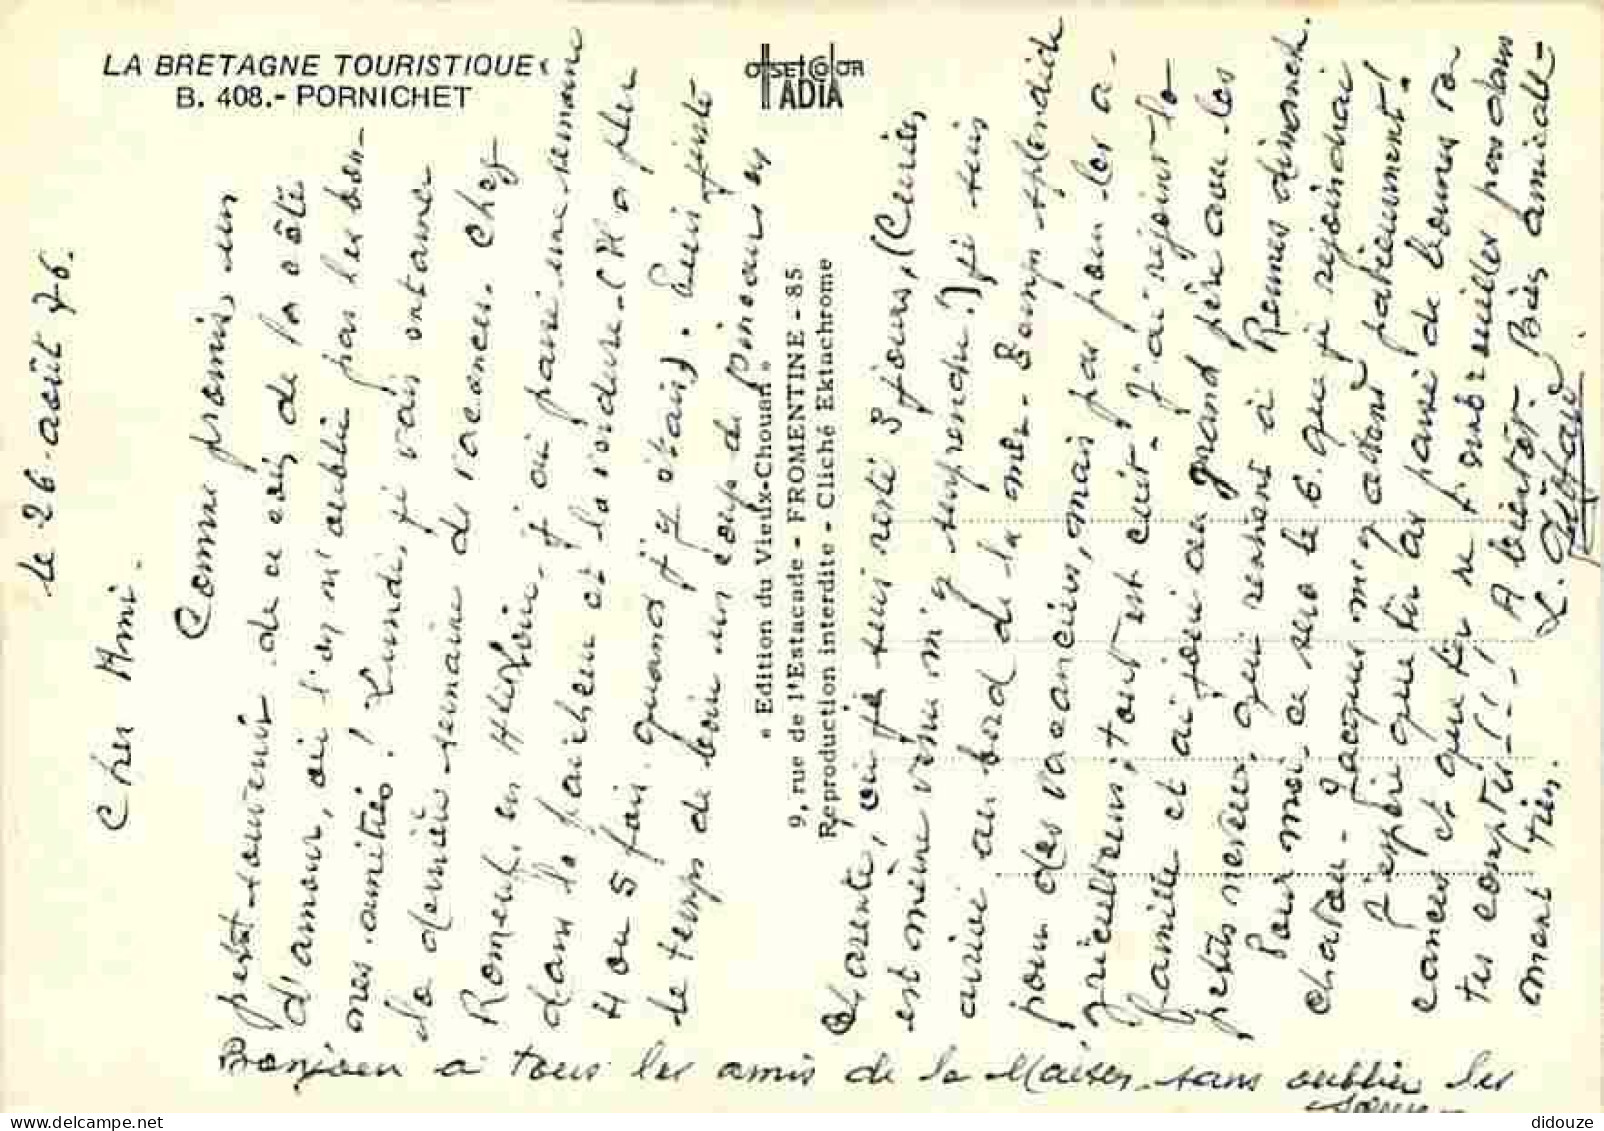 LA BRETAGNE TOURISTIQUE
B. 408.- PORNICHET
OFFSETCOLOR
ADIA
« Edition du Vieux-Chouan »
9, rue de l'Estacade - FROMENTINE - 85
Reproduction interdite - Cliché Ektachrome
le 26 août 76.
Cher Ami.
Comme promis, un
petit souvenir de ce coin de la côte
d'amour, où l'on n'oublie pas les bon-
nes amitiés ! Lundi, je vais entamer
la dernière semaine de vacances. Chez
Romeuf, en Hte Loire, j'ai passé une semaine
dans la fraîcheur et la verdure. (Il a plu
4 ou 5 fois quand j'y étais). Puis juste
le temps de boire un coup de Pineau en
Charente, où je suis resté 3 jours, (Curieux
est même venu m'y surprendre !) je suis
arrivé au bord de la mer. Temps splendide
pour des vacanciers, mais pas pour les a-
griculteurs; tout est cuit. J'ai rejoint la
famille et ai joué au grand père avec les
petits neveux, qui rentrent à Rennes dimanche.
Pour moi, ce sera le 6 que je rejoindrai
chatou. Jacques m'y attend patiemment !
J'espère que tu as passé de bonnes va
cances et que tu ne t'embrouilles pas dans
tes comptes !!! A bientôt. Bien amicale-
ment tien.
Bonjour à tous les amis de la Maison sans oublier les
didouze